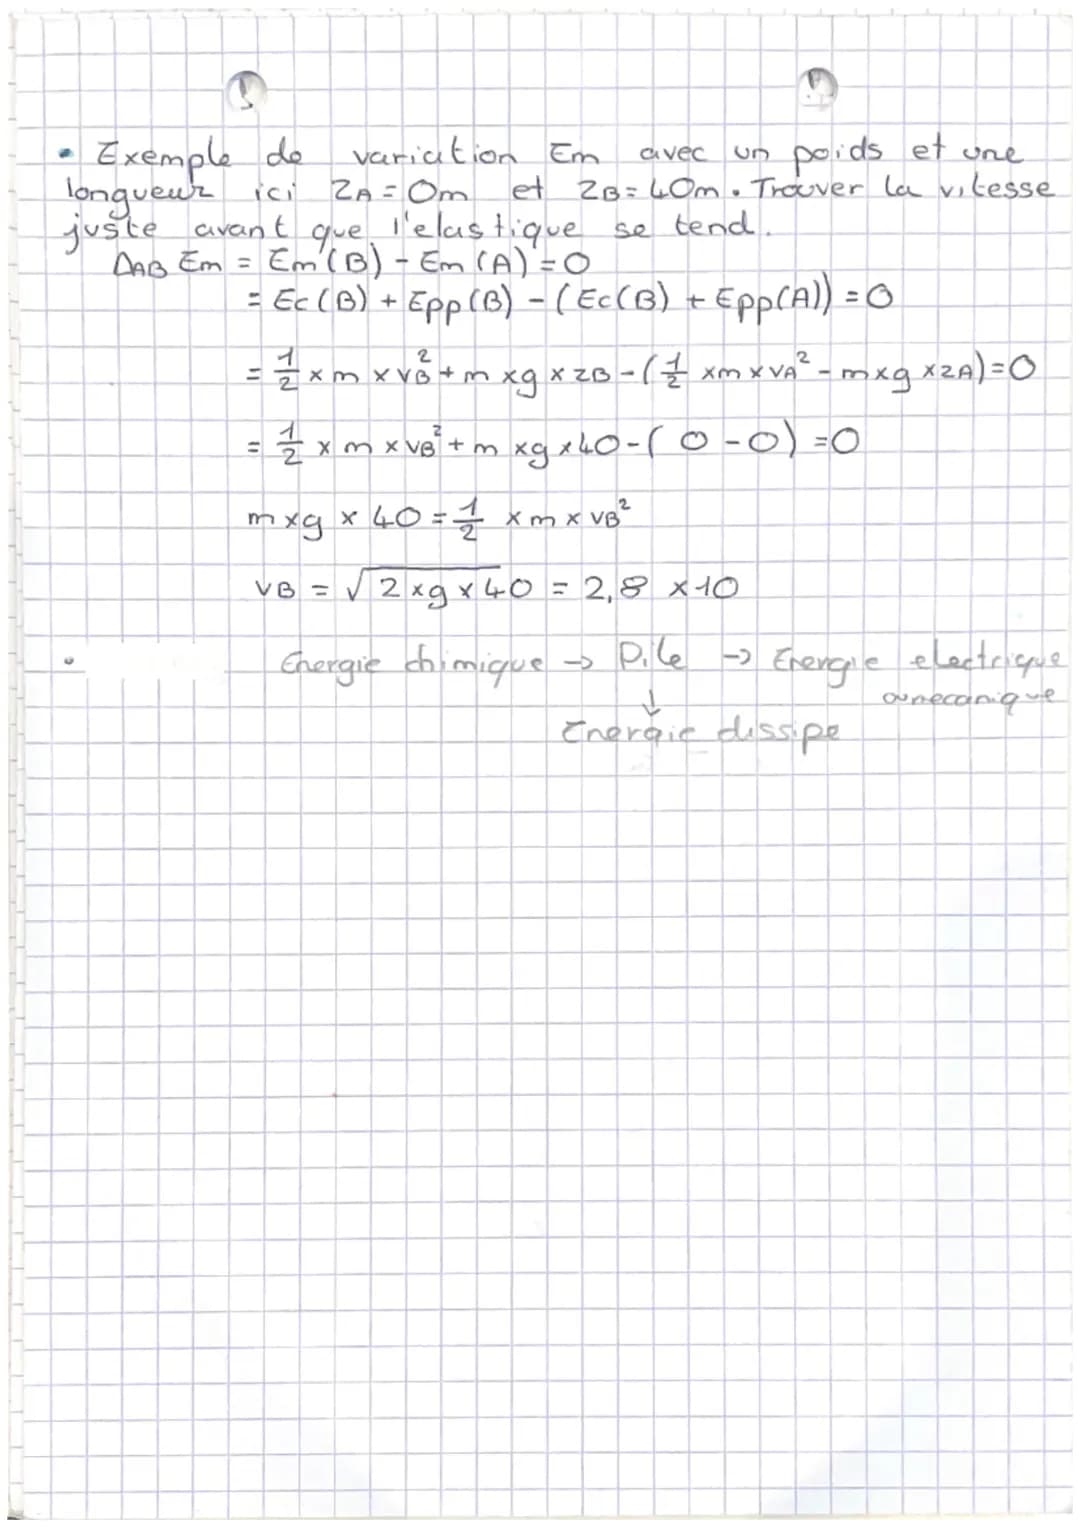 • Exemple de variation Em avec un poids et une
longueur ici ZA = 0m et ZB = 40m. Trouver la vitesse
juste avant que l'elastique se tend.
ΔAB Em = Em(B) - Em(A) = 0
= Ec(B) + Epp(B) - (Ec(B) + Epp(A)) = 0
= 1/2 × m × vB² + m × g × zB - (1/2 × m × vA² - m × g × zA) = 0
= 1/2 × m × vB² + m × g × 40 - (0 - 0) = 0
m × g × 40 = 1/2 × m × vB²
VB = √2 × g × 40 = 2,8 × 10
• Energie chimique → Pile → Energie electrique
ou mecanique
↓
Energie dissipe